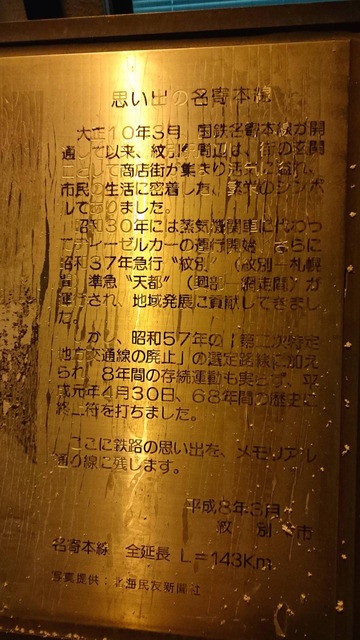 思い出の名寄本線
大正10年3月 国鉄名寄本線が開
通して以来、紋別駅周辺は、街の玄関
として商店街が集まり活気に溢れ、
市民の生活に密着した、繁栄のシンボ
ルでありました。
昭和30年には蒸気機関車に代わっ
てディーゼルカーの運行開始、さらに
昭和37年急行“紋別”（紋別－札幌
準急“天都”（興部－網走間）が
運行され、地域発展に貢献してきまし
た。
しかし、昭和57年の「第二次特定
地方交通線の廃止」の選定路線に加え
られ、8年間の存続運動も実らず、平
成元年4月30日、68年間の歴史に
終止符を打ちました。
ここに鉄路の思い出を、メモリアル
通り線に残します。
平成8年3月
紋別市
名寄本線 全延長 L=143Km
写真提供：北海民友新聞社